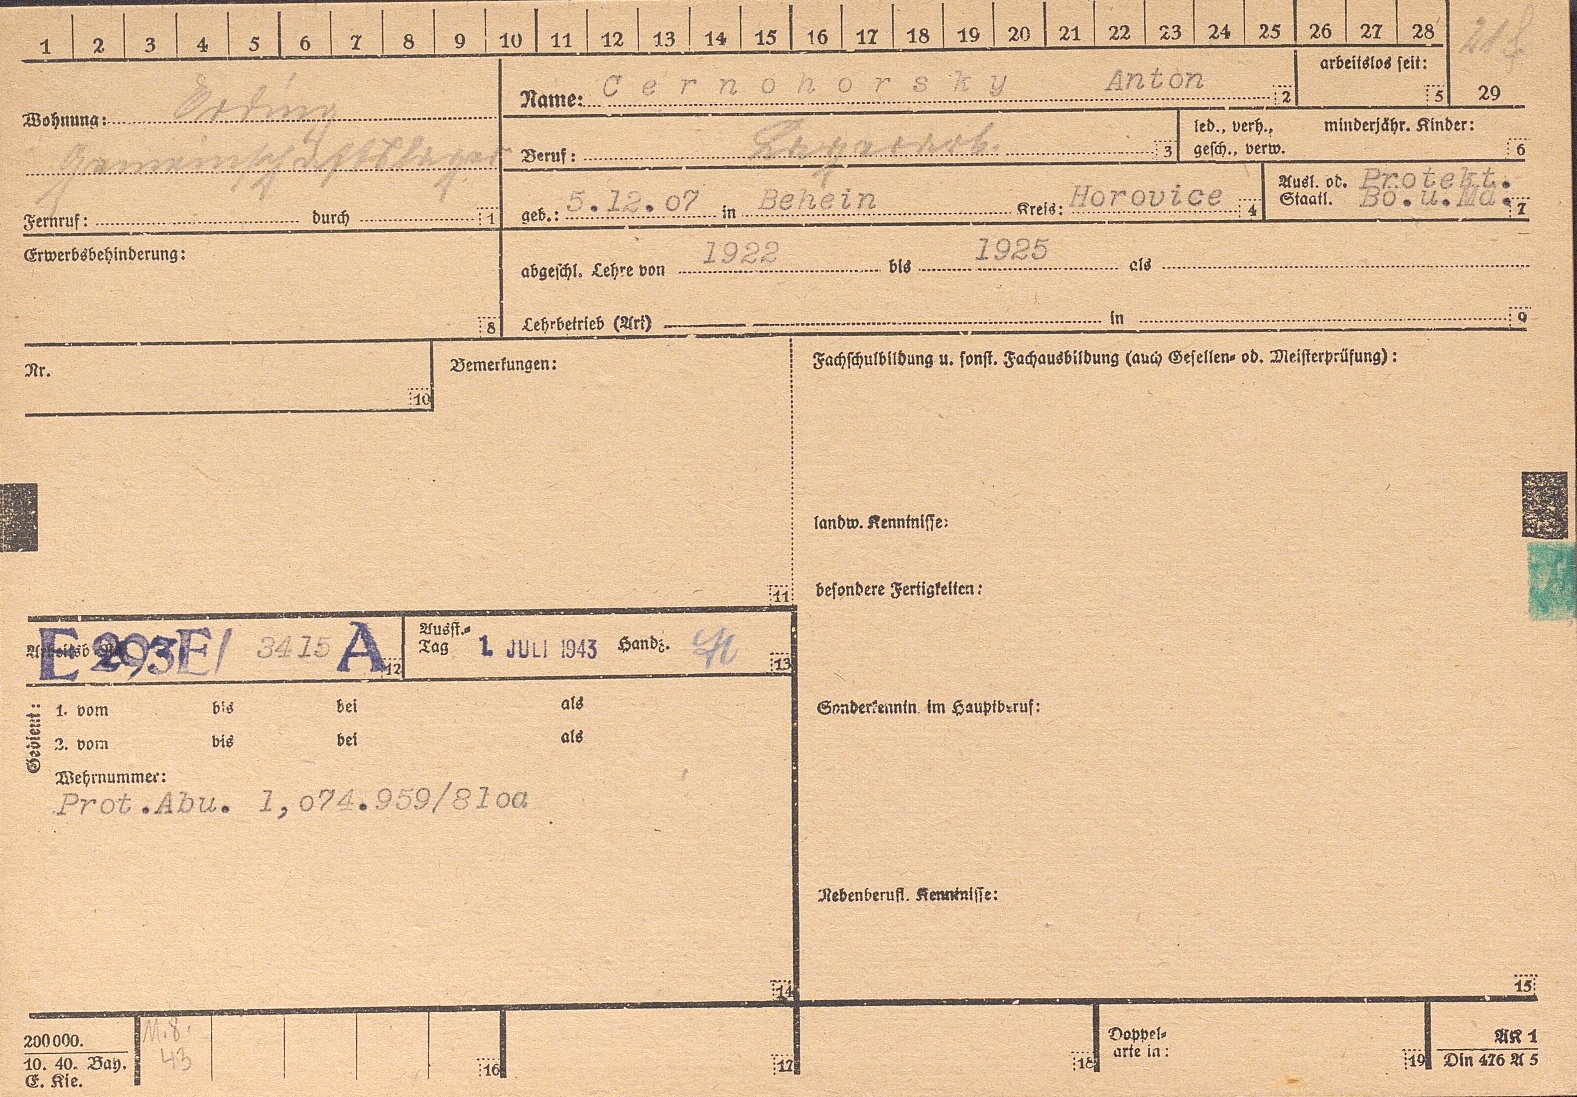 1 2 3 4 5 6 7 8 9 10 11 12 13 14 15 16 17 18 19 20 21 22 23 24 25 26 27 28
Name: Cernohorsky Anton 2
arbeitslos seit: 5
29
Wohnung: Erding
Gemeinschaftslager
Fernruf: durch 1
Beruf: Lagerarb. 3
led., verh., minderjähr. Kinder:
gesch., verw. 6
geb.: 5.12.07 in Behein Kreis: Horovice 4
Ausl. od. Protekt.
Staatl. Bö.u.Mä. 7
Erwerbsbehinderung:
8
abgeschl. Lehre von 1922 bis 1925 als
Lehrbetrieb (Art) in 9
Nr.
10
Bemerkungen:
11
Fachschulbildung u. sonst. Fachausbildung (auch Gesellen- od. Meisterprüfung):
landw. Kenntnisse:
besondere Fertigkeiten:
E 293E/ 3415 A 12
Ausst.-
Tag 1. JULI 1943 Handz. 13
Sonderkenntn. im Hauptberuf:
Gedient:
1. vom bis bei als
2. vom bis bei als
Wehrnummer:
Prot.Abu. 1,o74.959/81oa
14
Nebenberufl. Kenntnisse:
15
200000.
10. 40. Bay.
E. Kie.
M.8.
43
16
17
18
Doppel-
arte in:
19
AK 1
Din 476 A 5